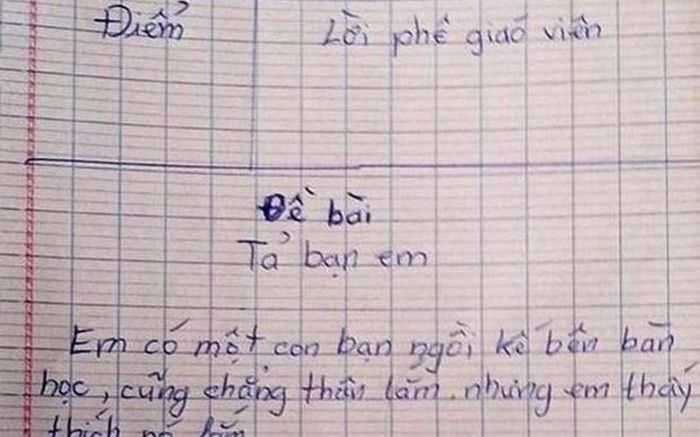 Điểm Lời phê giáo viên
Đề bài
Tả bạn em
Em có một con bạn ngồi kế bên bàn
học, cũng chẳng thân lắm. nhưng em thấy
thích nó lắm